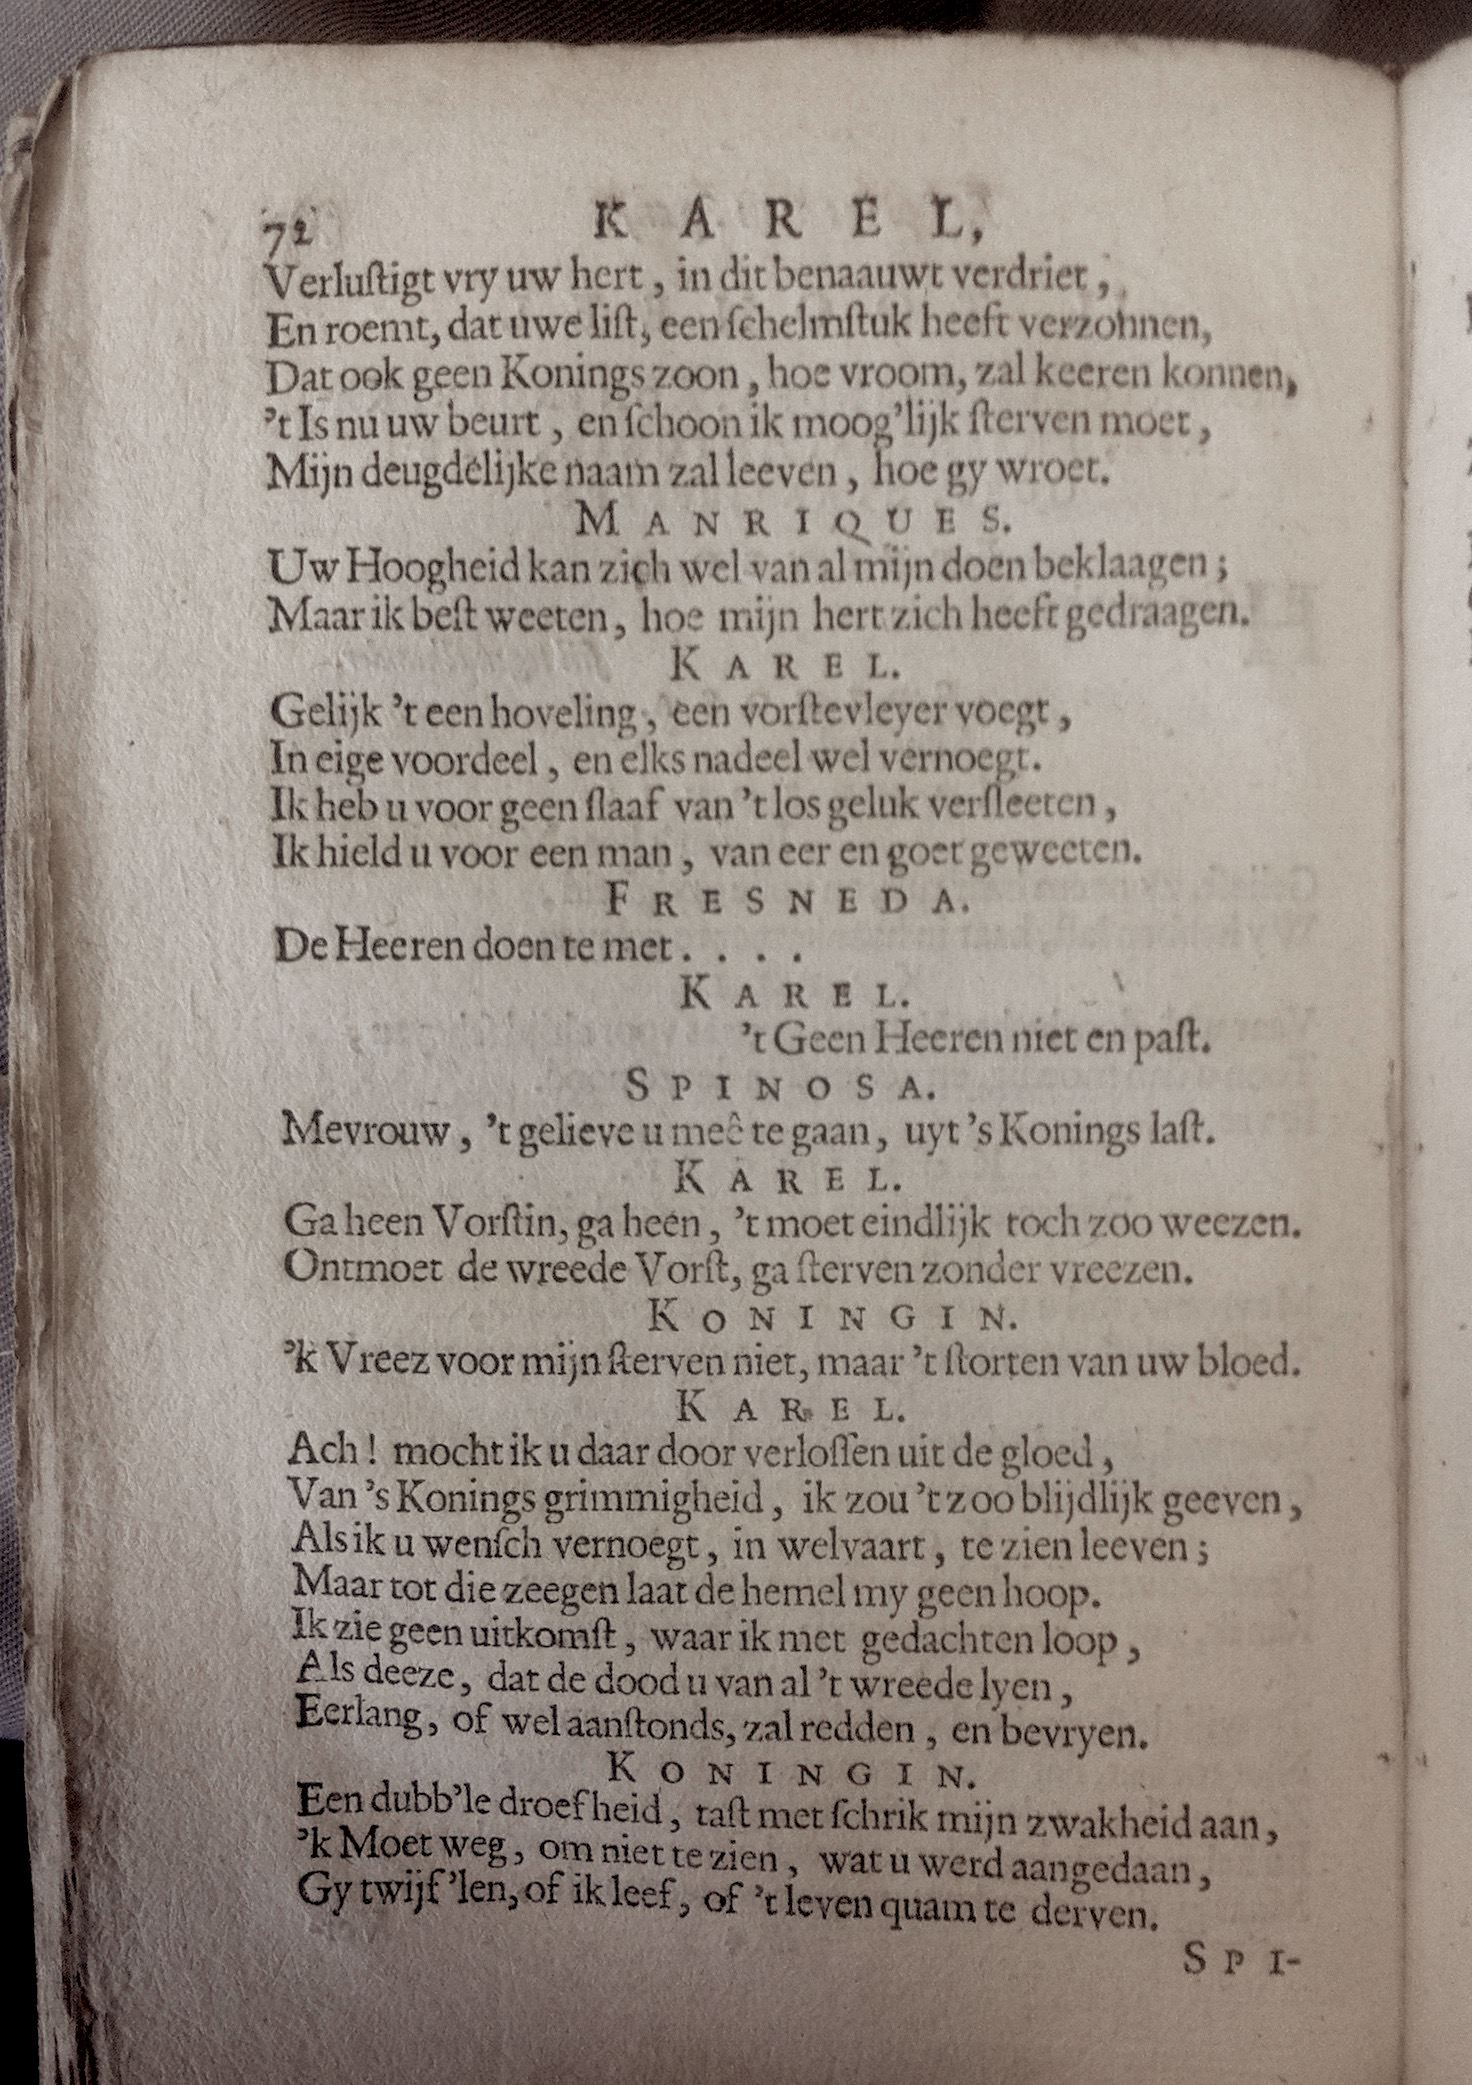 72 KAREL,
Verluſtigt vry uw hert, in dit benaauwt verdriet,
En roemt, dat uwe liſt, een ſchelmſtuk heeft verzonnen,
Dat ook geen Konings zoon, hoe vroom, zal keeren konnen,
't Is nu uw beurt, en ſchoon ik moog'lijk ſterven moet,
Mijn deugdelijke naam zal leeven, hoe gy wroet.
MANRIQUES.
Uw Hoogheid kan zich wel van al mijn doen beklaagen;
Maar ik beſt weeten, hoe mijn hert zich heeft gedraagen.
KAREL.
Gelijk 't een hoveling, een vorſtevleyer voegt,
In eige voordeel, en elks nadeel wel vernoegt.
Ik heb u voor geen ſlaaf van 't los geluk verſleeten,
Ik hield u voor een man, van eer en goet geweeten.
FRESNEDA.
De Heeren doen te met. . . .
KAREL.
't Geen Heeren niet en paſt.
SPINOSA.
Mevrouw, 't gelieve u meê te gaan, uyt 's Konings laſt.
KAREL.
Ga heen Vorſtin, ga heen, 't moet eindlijk toch zoo weezen.
Ontmoet de wreede Vorſt, ga ſterven zonder vreezen.
KONINGIN.
'k Vreez voor mijn ſterven niet, maar 't ſtorten van uw bloed.
KAREL.
Ach! mocht ik u daar door verloſſen uit de gloed,
Van 's Konings grimmigheid, ik zou 't zoo blijdlijk geeven,
Als ik u wenſch vernoegt, in welvaart, te zien leeven;
Maar tot die zeegen laat de hemel my geen hoop.
Ik zie geen uitkomſt, waar ik met gedachten loop,
Als deeze, dat de dood u van al 't wreede lyen,
Eerlang, of wel aanſtonds, zal redden, en bevryen.
KONINGIN.
Een dubb'le droefheid, taſt met ſchrik mijn zwakheid aan,
'k Moet weg, om niet te zien, wat u werd aangedaan,
Gy twijf'len, of ik leef, of 't leven quam te derven.
SPI-